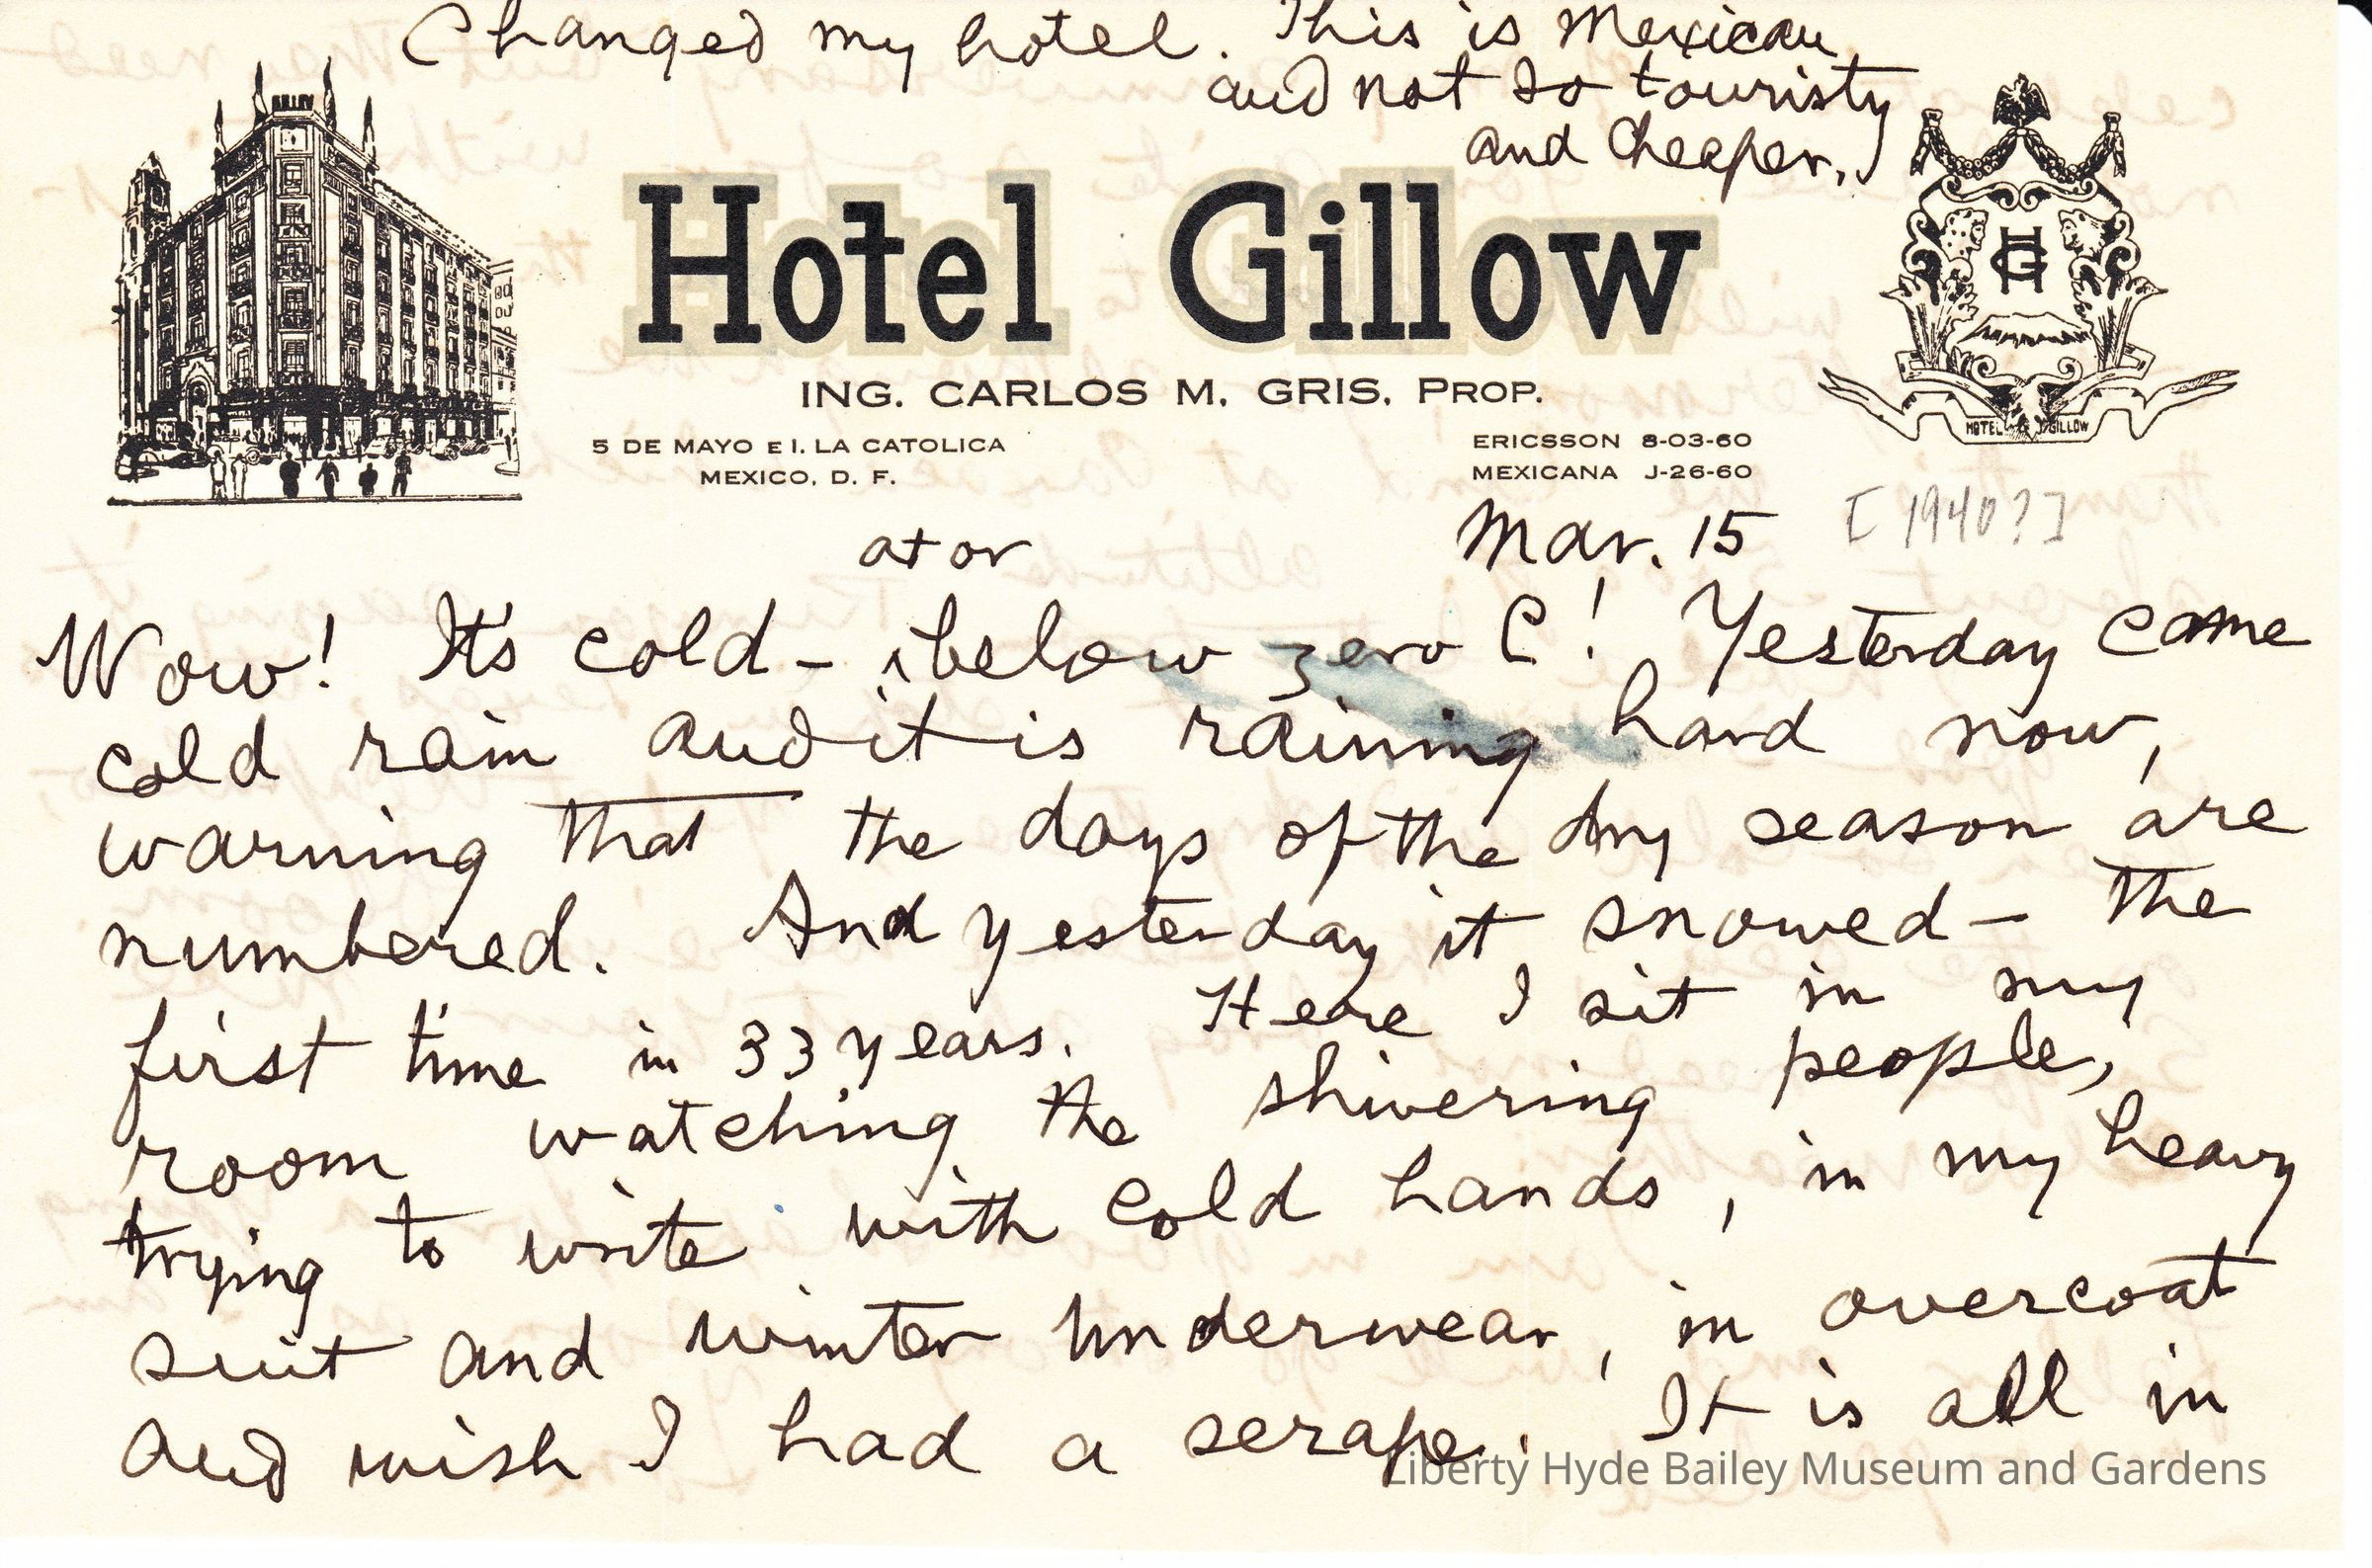 Changed my hotel. This is Mexican
and not so touristy
and cheaper.
GILLOW
Hotel Gillow
HG
ING. CARLOS M. GRIS, PROP.
5 DE MAYO E I. LA CATOLICA
MEXICO, D. F.
ERICSSON 8-03-60
MEXICANA J-26-60
HOTEL GILLOW
Mar. 15 [1940?]
at or
Wow! It's cold - below zero C! Yesterday came
cold rain and it is raining hard now,
warning that the days of the dry season are
numbered. And yesterday it snowed - the
first time in 33 years. Here I sit in my
room watching the shivering people,
trying to write with cold hands, in my heavy
suit and winter underwear, in overcoat
and wish I had a serape. It is all in
Liberty Hyde Bailey Museum and Gardens